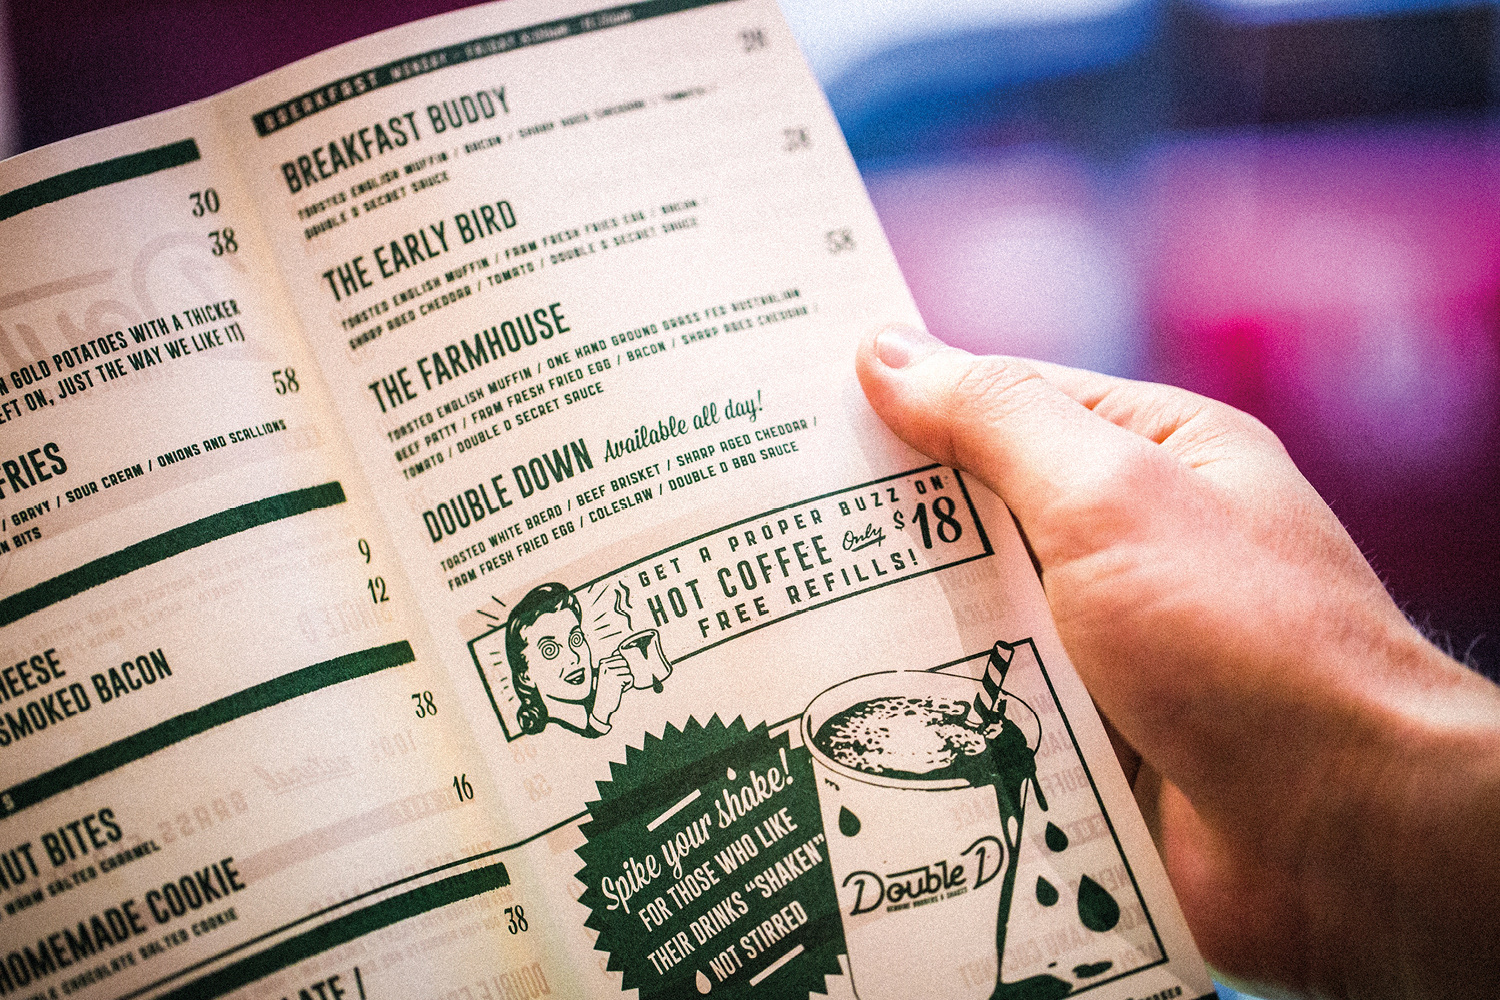 30
38
GOLD POTATOES WITH A THICKER
EFT ON, JUST THE WAY WE LIKE IT)
58
FRIES
/ GRAVY / SOUR CREAM / ONIONS AND SCALLIONS
BITS
9
12
HEESE
SMOKED BACON
38
16
NUT BITES
WARM SALTED CARAMEL
HOMEMADE COOKIE
CHOCOLATE SALTED COOKIE
38
LATE /
BREAKFAST MONDAY - FRIDAY
BREAKFAST BUDDY
TOASTED ENGLISH MUFFIN / BACON / SHARP AGED CHEDDAR / TOMATO /
DOUBLE D SECRET SAUCE
THE EARLY BIRD
38
TOASTED ENGLISH MUFFIN / FARM FRESH FRIED EGG / BACON /
SHARP AGED CHEDDAR / TOMATO / DOUBLE D SECRET SAUCE
THE FARMHOUSE
58
TOASTED ENGLISH MUFFIN / ONE HAND GROUND GRASS FED AUSTRALIAN
BEEF PATTY / FARM FRESH FRIED EGG / BACON / SHARP AGED CHEDDAR /
TOMATO / DOUBLE D SECRET SAUCE
DOUBLE DOWN Available all day!
TOASTED WHITE BREAD / BEEF BRISKET / SHARP AGED CHEDDAR /
FARM FRESH FRIED EGG / COLESLAW / DOUBLE D BBQ SAUCE
GET A PROPER BUZZ ON
HOT COFFEE Only $18
FREE REFILLS!
Spike your shake!
FOR THOSE WHO LIKE
THEIR DRINKS "SHAKEN"
NOT STIRRED
Double D
GENUINE BURGERS & SHAKES